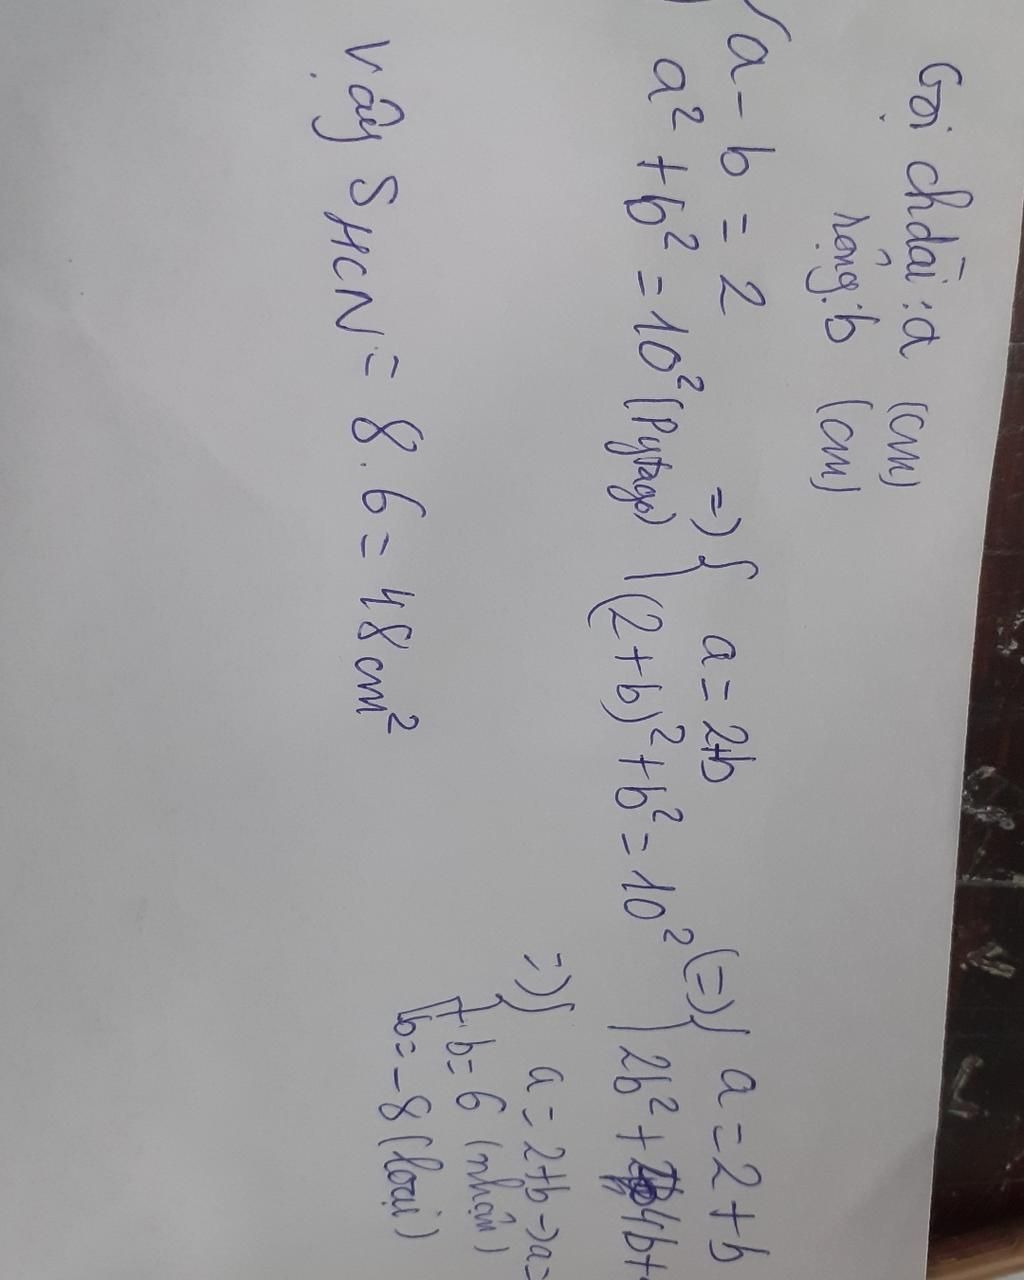 Gọi chdài : a (cm)
rộng : b (cm)
{ a - b = 2 => { a = 2+b (=) { a = 2 + b
a² + b² = 10² (Pytago) (2+b)² + b² = 10² 2b² + 4b +
=> { a = 2+b -> a =
b = 6 (nhận)
b = -8 (loại)
Vậy SHCN = 8 . 6 = 48 cm²